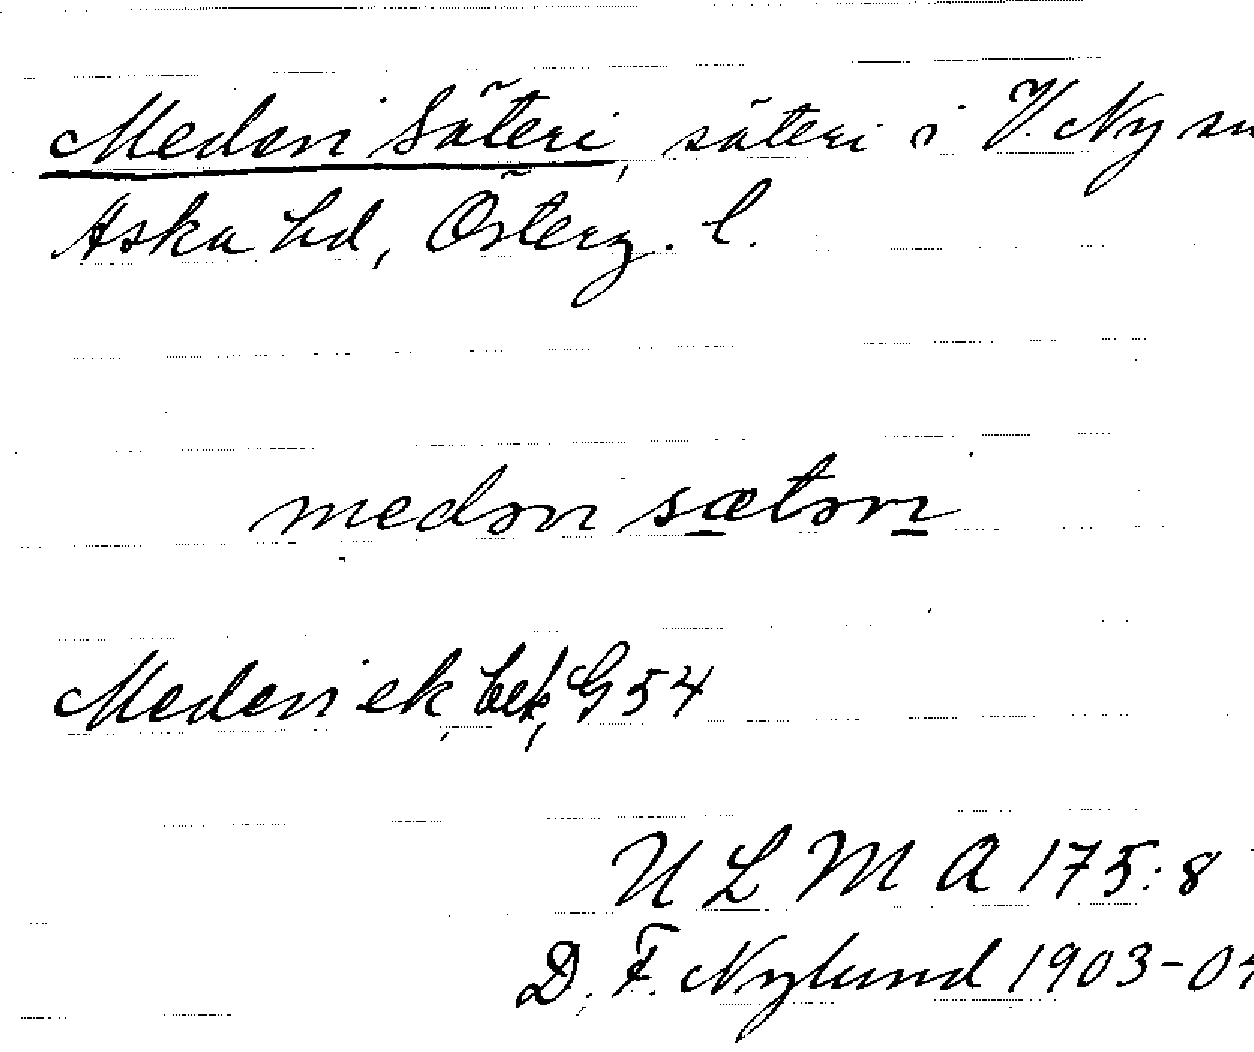 Medevi Säteri, säteri i V. Ny sn
Aska hd, Österg. l.
medəvi sætəri
Medevi ek, bek, G 54
ULMA 175:8
D. F. Nylund 1903-04